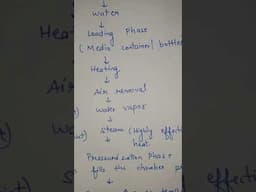 ↓
Water
↓
Loading Phase
(Media container/bottles
↓
Heating
↓
Air removal
↓
Water vapor
↓
Steam (Highly effecti
heat
Pressurization Phase
fills the chamber
↓